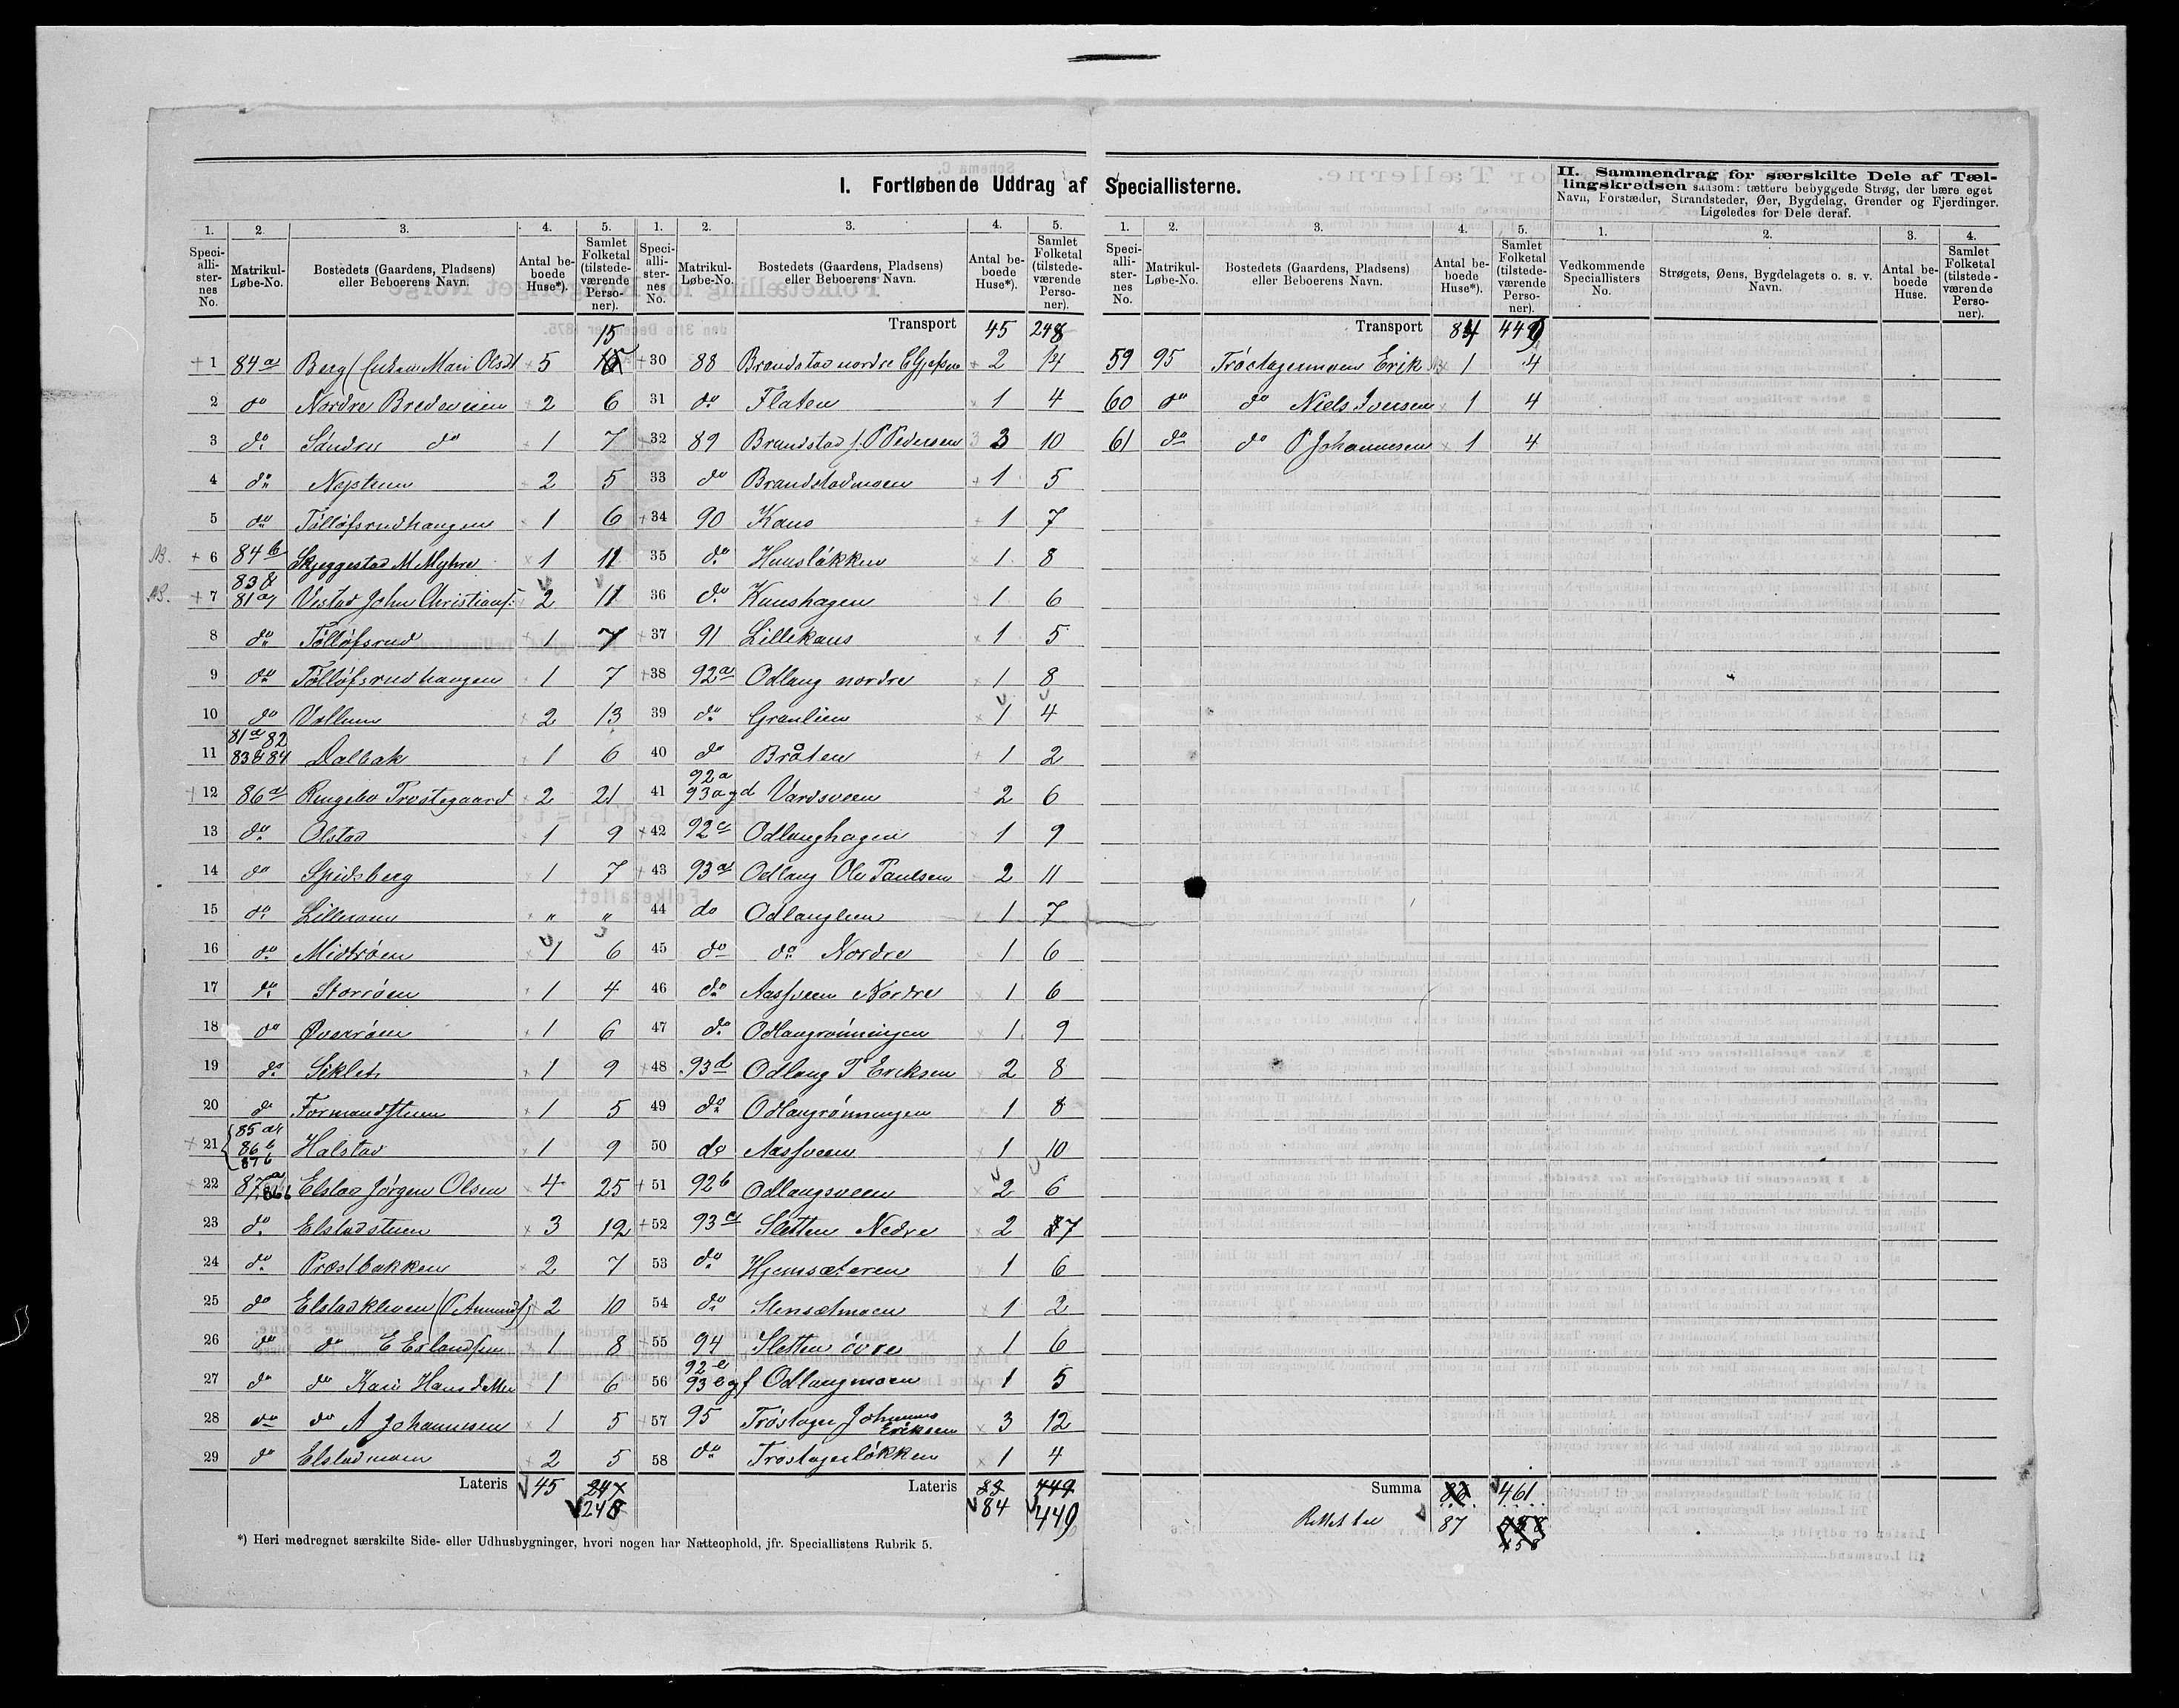 I. Fortløbende Uddrag af Speciallisterne.
II. Sammendrag for særskilte Dele af Tæl-
lingskredsen saasom: tættere bebyggede Strøg, der bære eget
Navn, Forstæder, Strandsteder, Øer, Bygdelag, Grender og Fjerdinger.
Ligeledes for Dele deraf.
1. 2. 3. 4. 5.
Speciallisternes No. Matrikul-Løbe-No. Bostedets (Gaardens, Pladsens) eller Beboerens Navn. Antal beboede Huse*). Samlet Folketal (tilstedeværende Personer).
15
+ 1 84 a Berg Mari Olsd 5
2 do Nordre Bredeveien 2 6
3 do Søndre do 1 7
4 do Nystuen 2 5
5 do Tølløfsrudhaugen 1 6
NB. + 6 84 b Skjeggestad M Myhre 1 11
83 b
NB. + 7 81 a Vestad John Christians: 2 11
8 do Tølløfsrud 1 7
9 do Tølløfsrudhaugen 1 7
10 do Vollum 2 13
81 a 82
11 83 b 84 Dalbak 1 6
12 86 a Ringebo Prostegaard 2 21
13 do Olstad 1 9
14 do Spidsberg 1 7
15 do " "
16 do Midtrøen 1 6
17 do Storrøen 1 4
18 do Øverrøen 1 6
19 do Siklet 1 9
20 do 1 5
85 a
21 86 b Halstad 1 9
87 b
22 87 a 86 b Elstad Jørgen Olsen 4 25
23 do Elstadstuen 3 12
24 do Prostbakken 2 7
25 do Elstadkleven 2 10
26 do do E Erlandsen 1 8
27 do do Kari Hansdatter 1 6
28 do do A Johannesen 1 5
29 do Elstadmoen 2 5
Lateris 45 247
248
1. 2. 3. 4. 5.
Speciallisternes No. Matrikul-Løbe-No. Bostedets (Gaardens, Pladsens) eller Beboerens Navn. Antal beboede Huse*). Samlet Folketal (tilstedeværende Personer).
Transport 45 248
+ 30 88 Brandstad nordre 2 14
31 do Flaten 1 4
+ 32 89 Brandstad s. P Pedersen 3 10
33 do Brandstadmoen 1 5
+ 34 90 Kaus 1 7
35 do 1 8
36 do Kaushagen 1 6
37 91 Lillekaus 1 5
+ 38 92 a Odlaug nordre 1 8
39 do Granlien 1 4
40 do Bråten 1 2
92 a
41 93 a og d Vardsveen 2 6
+ 42 92 c Odlaughagen 1 9
+ 43 93 a Odlaug Ole Paulsen 2 11
44 do Odlauglien 1 7
45 do do Nordre 1 6
46 do Aassveen Nordre 1 6
47 do Odlaugrønningen 1 9
48 93 d Odlaug T Eriksen 2 8
49 do Odlaugrønningen 1 8
50 do Aassveen 1 10
+ 51 92 b Odlaugsveen 2 6
+ 52 93 c Sletten Nedre 2 7
53 do Hjemsæteren 1 6
54 do Stensætmoen 1 2
+ 55 94 Sletten øvre 1 6
92 e
56 93 e og f Odlaugmoen 1 5
+ 57 95 Trøstager Johannes Eriksen 3 12
58 do Trøstagerløkken 1 4
Lateris 83 449
84 449
1. 2. 3. 4. 5.
Speciallisternes No. Matrikul-Løbe-No. Bostedets (Gaardens, Pladsens) eller Beboerens Navn. Antal beboede Huse*). Samlet Folketal (tilstedeværende Personer).
Transport 84 449
59 95 Trøstagermoen Erik 1 4
60 do do Niels Iversen 1 4
61 do do P Johannesen 1 4
Summa 86 461
Rettet til 87 458
458
1. 2. 3. 4.
Vedkommende Speciallisters No. Strøgets, Øens, Bygdelagets o. s. v. Navn. Antal beboede Huse. Samlet Folketal (tilstedeværende Personer).
*) Heri medregnet særskilte Side- eller Udhusbygninger, hvori nogen har Natteophold, jfr. Speciallistens Rubrik 5.